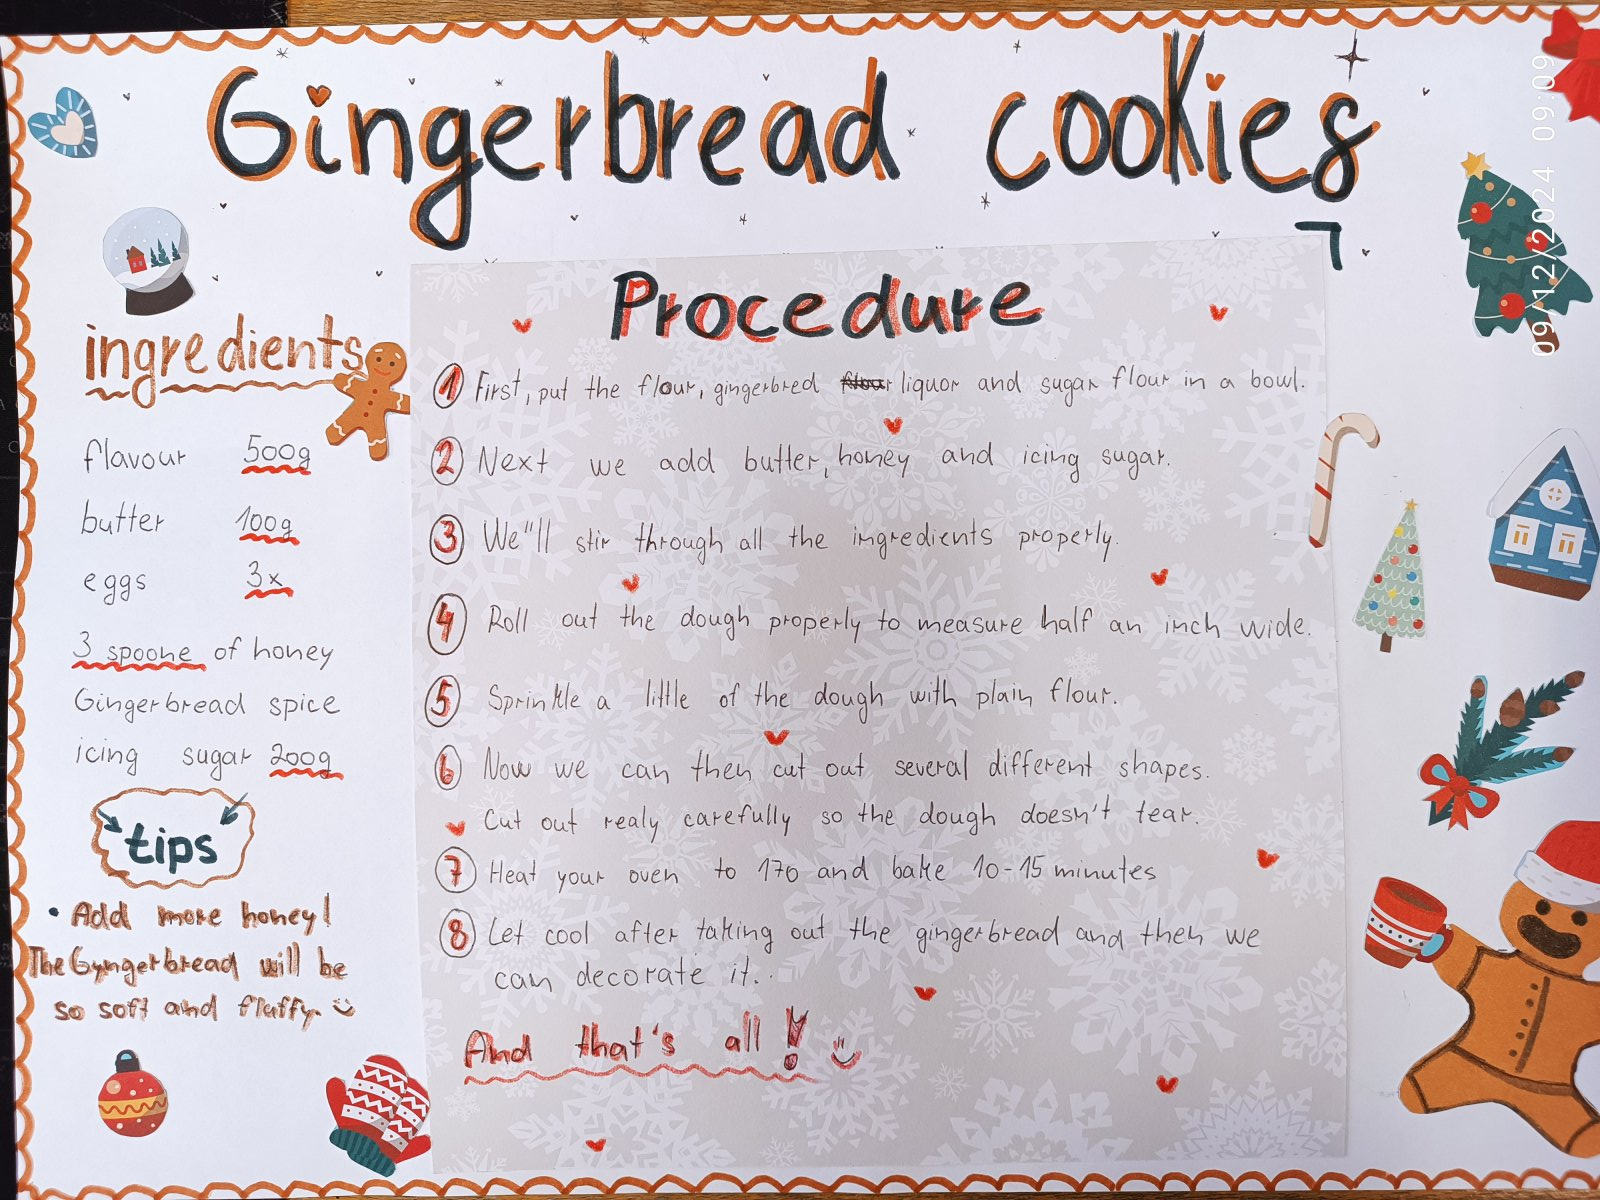 Gingerbread cookies
ingredients
flavour 500g
butter 100g
eggs 3x
3 spoone of honey
Gingerbread spice
icing sugar 200g
tips
• Add more honey!
The Gyngerbread will be
so soft and fluffy.
Procedure
1 First, put the flour, gingerbred liquor and sugar flour in a bowl.
2 Next we add butter, honey and icing sugar.
3 We"ll stir through all the ingredients properly.
4 Roll out the dough properly to measure half an inch wide.
5 Sprinkle a little of the dough with plain flour.
6 Now we can then cut out several different shapes.
Cut out realy carefully so the dough doesn't tear.
7 Heat your oven to 170 and bake 10-15 minutes
8 Let cool after taking out the gingerbread and then we
can decorate it..
And that's all!
09/12/2024 09:09